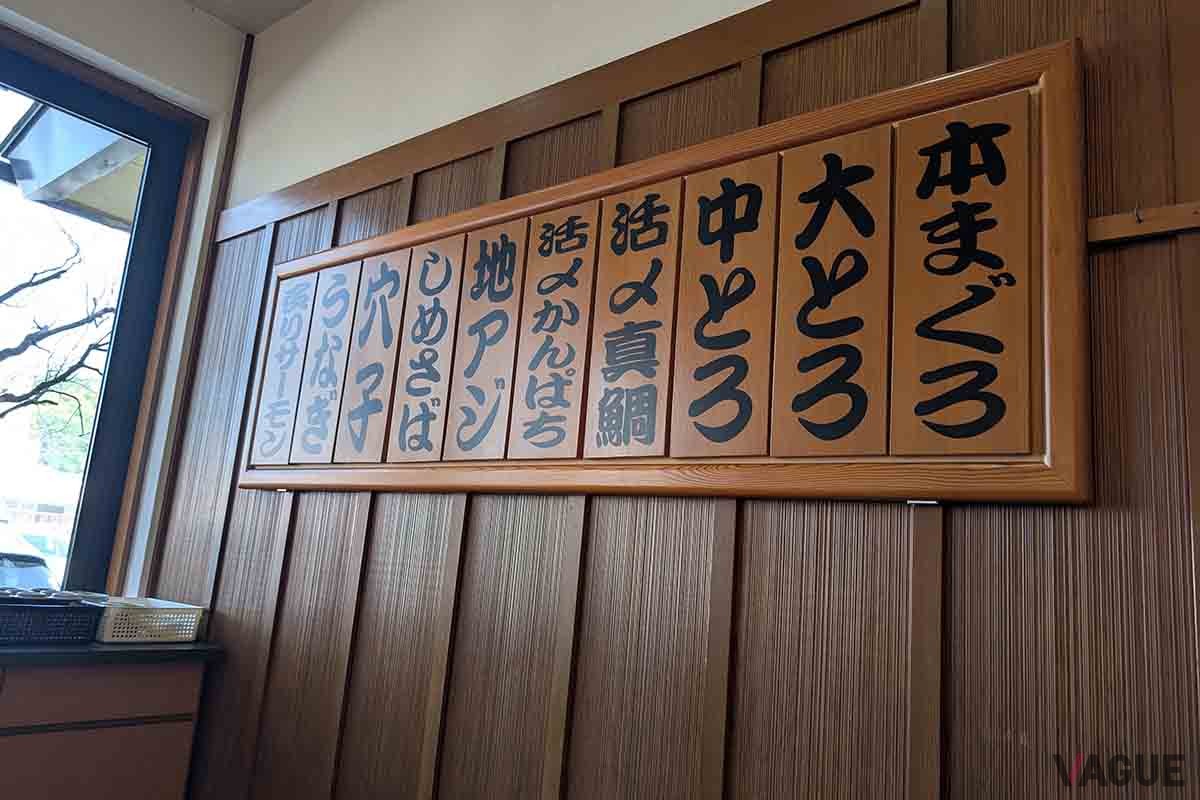 本まぐろ
大とろ
中とろ
活〆真鯛
活〆かんぱち
地アジ
しめさば
穴子
うなぎ
炙りサーモン
VAGUE